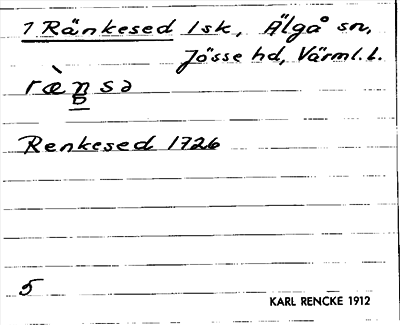 1 Ränkesed Isk, Älgå sn,
Jösse hd, Värml. l.
ræ̀ŋsə
Renkesed 1726
5
KARL RENCKE 1912